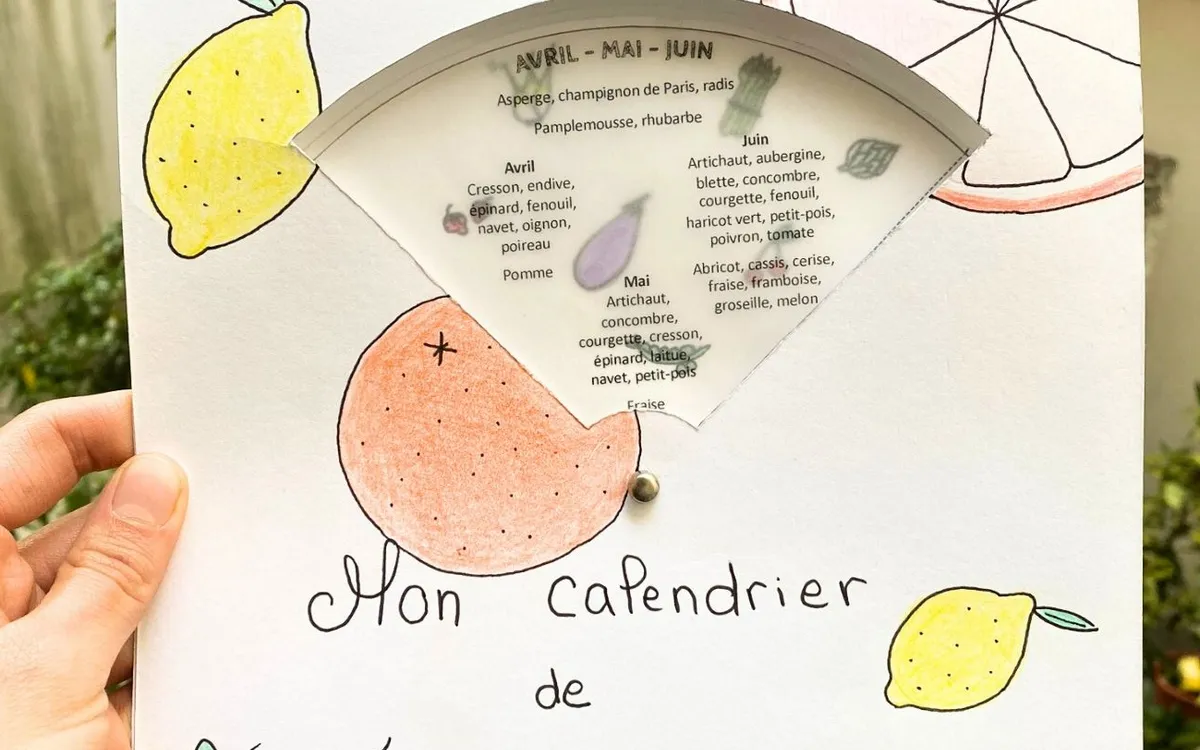 AVRIL - MAI - JUIN
Asperge, champignon de Paris, radis
Pamplemousse, rhubarbe
Avril
Cresson, endive,
épinard, fenouil,
navet, oignon,
poireau
Pomme
Juin
Artichaut, aubergine,
blette, concombre,
courgette, fenouil,
haricot vert, petit-pois,
poivron, tomate
Abricot, cassis, cerise,
fraise, framboise,
groseille, melon
Mai
Artichaut,
concombre,
courgette, cresson,
épinard, laitue,
navet, petit-pois
Fraise
Mon calendrier
de